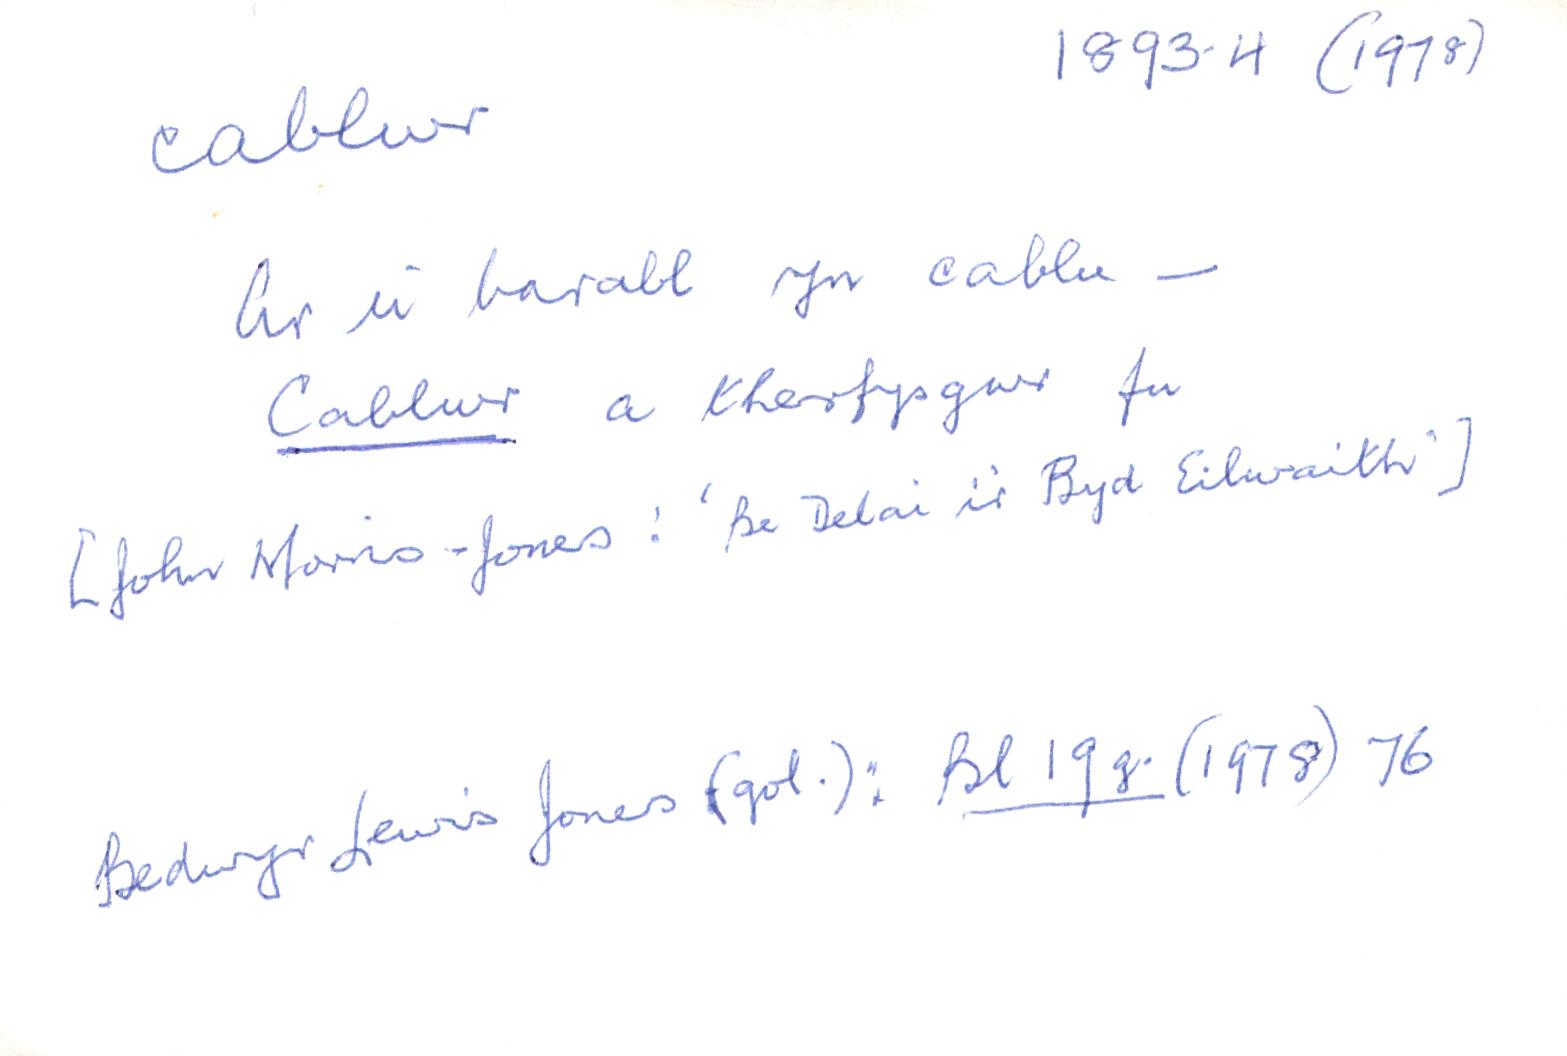 1893-4 (1978)
cablwr
Ar ei barabl yn cablu –
Cablwr a therfysgwr fu
[John Morris-Jones: 'Pe Delai i'r Byd Eilwaith']
Bedwyr Lewis Jones (gol.): Bl 19g. (1978) 76